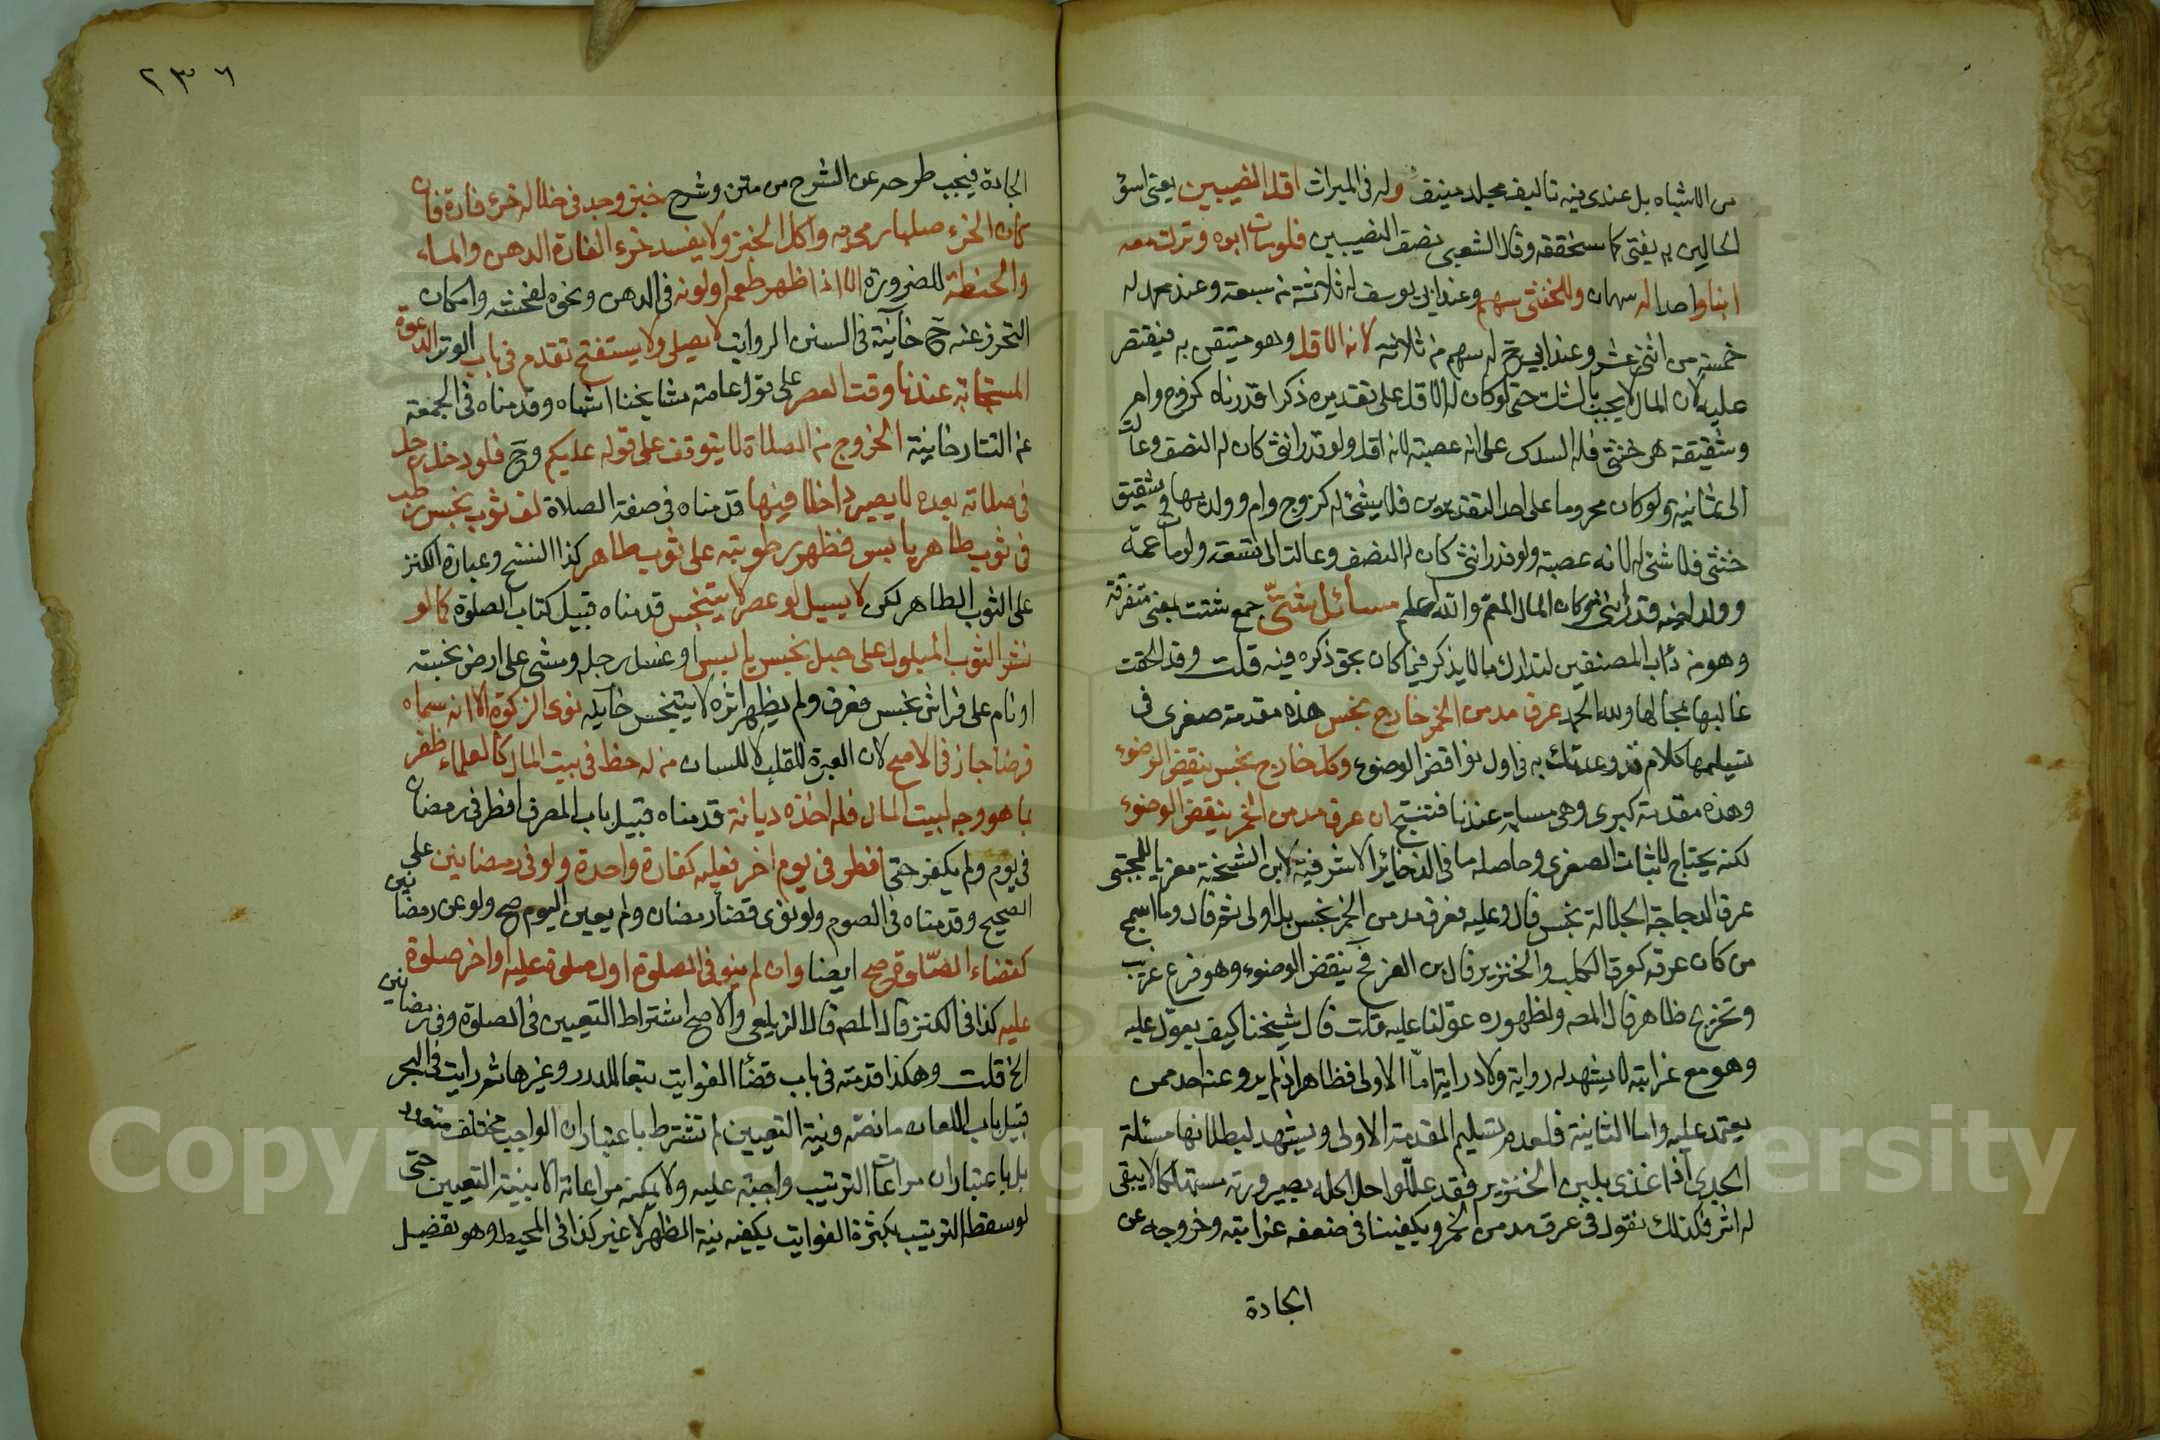 من الاشباه بل عندى فيه تاليف مجلد منيف وله فى الميراث اقل النصيبين يعنى اسوء
الحالين به يفتى كما سنحققه وقال الشعبى نصف النصيبين فلومات ابوه وترك معه
ابنا واحدا له سهمان وللخنثى سهم وعند ابى يوسف له ثلاثة من سبعة وعند محمد له
خمسة من اثنى عشر وعند ابى ح له سهم من ثلاثة لانه الاقل وهو متيقن به فيقتصر
عليه لان المال لا يجب بالشك حتى لو كان له الاقل على تقديره ذكرا قدرناه كزوج وام
وشقيقة هى خنثى فله السدس على انه عصبة لانه اقل ولو قدر انثى كان له النصف وعالت
الى ثمانية ولو كان محروما على احد التقديرين فلا شئ له كزوج وام وولديها وشقيق
خنثى فلا شئ له لانه عصبة ولو قدر انثى كان له النصف وعالت الى تسعة ولو مات عمه
وولد اخيه قدر انثى وكان المال للعم والله اعلم مسائل شتى جمع شتت بمعنى متفرقة
وهو من دأب المصنفين لتدارك ما لم يذكر فيما كان بحق ذكره فيه قلت وقد الحقت
غالبها بمحالها ولله الحمد عرق مدمن الخمر خارج نجس هذه مقدمة صغرى فى
تسليمها كلام قد وعدتك به فى اول نواقض الوضوء وكل خارج نجس ينقض الوضوء
وهذه مقدمة كبرى وهى مسلمة عندنا فنتج ان عرق مدمن الخمر ينقض الوضوء
لكنه يحتاج لاثبات الصغرى وحاصله ما فى الذخائر الاشرفية لابن الشحنة معزيا للمجتبى
عرق الدجاجة الجلالة نجس قال وعليه فعرق مدمن الخمر نجس بل اولى ثم قال وما اسمج
من كان عرقه كعرق الكلب والخنزير قال ابن العز فح ينقض الوضوء وهو فرع غريب
وتخريج ظاهر قال المصه ولظهوره عولنا عليه قلت قال شيخنا كيف يعول عليه
وهو مع غرابته لا يشهد له رواية ولا دراية اما الاولى فظاهر اذ لم يرو عن احد ممن
يعتمد عليه واما الثانية فلعدم تسليم المقدمة الاولى ويشهد لبطلانها مسئلة
الجدى اذا غذى بلبن الخنزير فقد عللوا حل اكله بصيرورته مستهلكا لا يبقى
له اثر فكذلك نقول فى عرق مدمن الخمر ويكفينا فى ضعفه غرابته وخروجه عن
الجادة
٢٣٦
الجادة فيجب طرحه عن الشرح من متن وشرح خبز وجد فى خلاله خرء فارة فان
كان الخرء صلبا رمى به واكل الخبز ولا يفسد خرء الفارة الدهن والماء
والحنطة للضرورة الا اذا ظهر طعمه او لونه فى الدهن ونحوه لفحشه وامكان
التحرز عنه ح خانية فى السنن الرواتب لا يصلى ولا يستفتح تقدم فى باب الوتر الدعوة
المستجابة عندنا وقت العصر على قول عامة مشايخنا اشباه وقدمناه فى الجمعة
عن التتارخانية الخروج من الصلاة لا يتوقف على قوله عليكم وح فلو دخل رجل
فى صلاته بعده لا يصير داخلا فيها قدمناه فى صفة الصلاة لف ثوب نجس رطب
فى ثوب طاهر يابس فظهر رطوبته على ثوب طاهر كذا النسخ وعبارة الكنز
على الثوب الطاهر لكن لا يسيل لو عصر لا يتنجس قدمناه قبيل كتاب الصلوة كما لو
نشر الثوب المبلول على حبل نجس يابس او غسل رجله ومشى على ارض نجسة
او نام على فراش نجس فعرق ولم يظهر اثره لا يتنجس خانية نوى الزكوة الا انه سماه
قرضا جاز فى الاصح لان العبرة للقلب لا للسان من له حظ فى بيت المال كالعلماء ظفر
بما هو وجه لبيت المال فله اخذه ديانة قدمناه قبيل باب المصرف افطر فى رمضان
فى يوم ولم يكفر حتى افطر فى يوم اخر فعليه كفارة واحدة ولو فى رمضانين على
الصحيح وقدمناه فى الصوم ولو نوى قضاء رمضان ولم يعين اليوم صح ولو عن رمضانين
كقضاء الصلوة صح ايضا وان لم ينو فى الصلوة اول صلوة عليه او اخر صلوة
عليه كذا فى الكنز قال المصه قال الزيلعى والاصح اشتراط التعيين فى الصلوة وفى رمضانين
الخ قلت وهكذا قدمته فى باب قضاء الفوايت تبعا للدرر وغيرها ثم رايت فى البحر
قبيل باب اللعان ما نصه ونية التعيين لم تشترط باعتبار ان الواجب مختلف متعدد
بل باعتبار ان مراعاة الترتيب واجبة عليه ولا يمكنه مراعاته الا بنية التعيين حتى
لو سقط الترتيب بكثرة الفوايت يكفيه نية الظهر لا غير كذا فى المحيط وهو تفضيل
Copyright © King Saud University